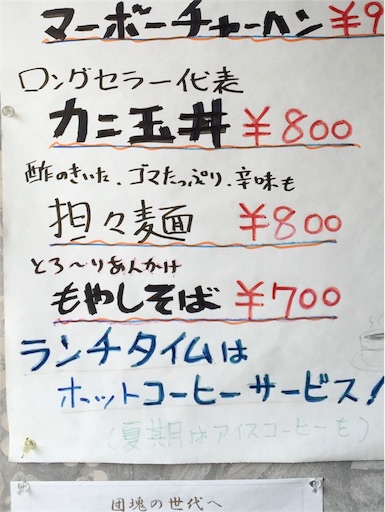 マーボーチャーハン ¥9
ロングセラー代表
カニ玉丼 ¥800
酢のきいた、ゴマたっぷり、辛味も
担々麺 ¥800
とろ〜りあんかけ
もやしそば ¥700
ランチタイムは
ホットコーヒーサービス!
(夏期はアイスコーヒーも)
団塊の世代へ